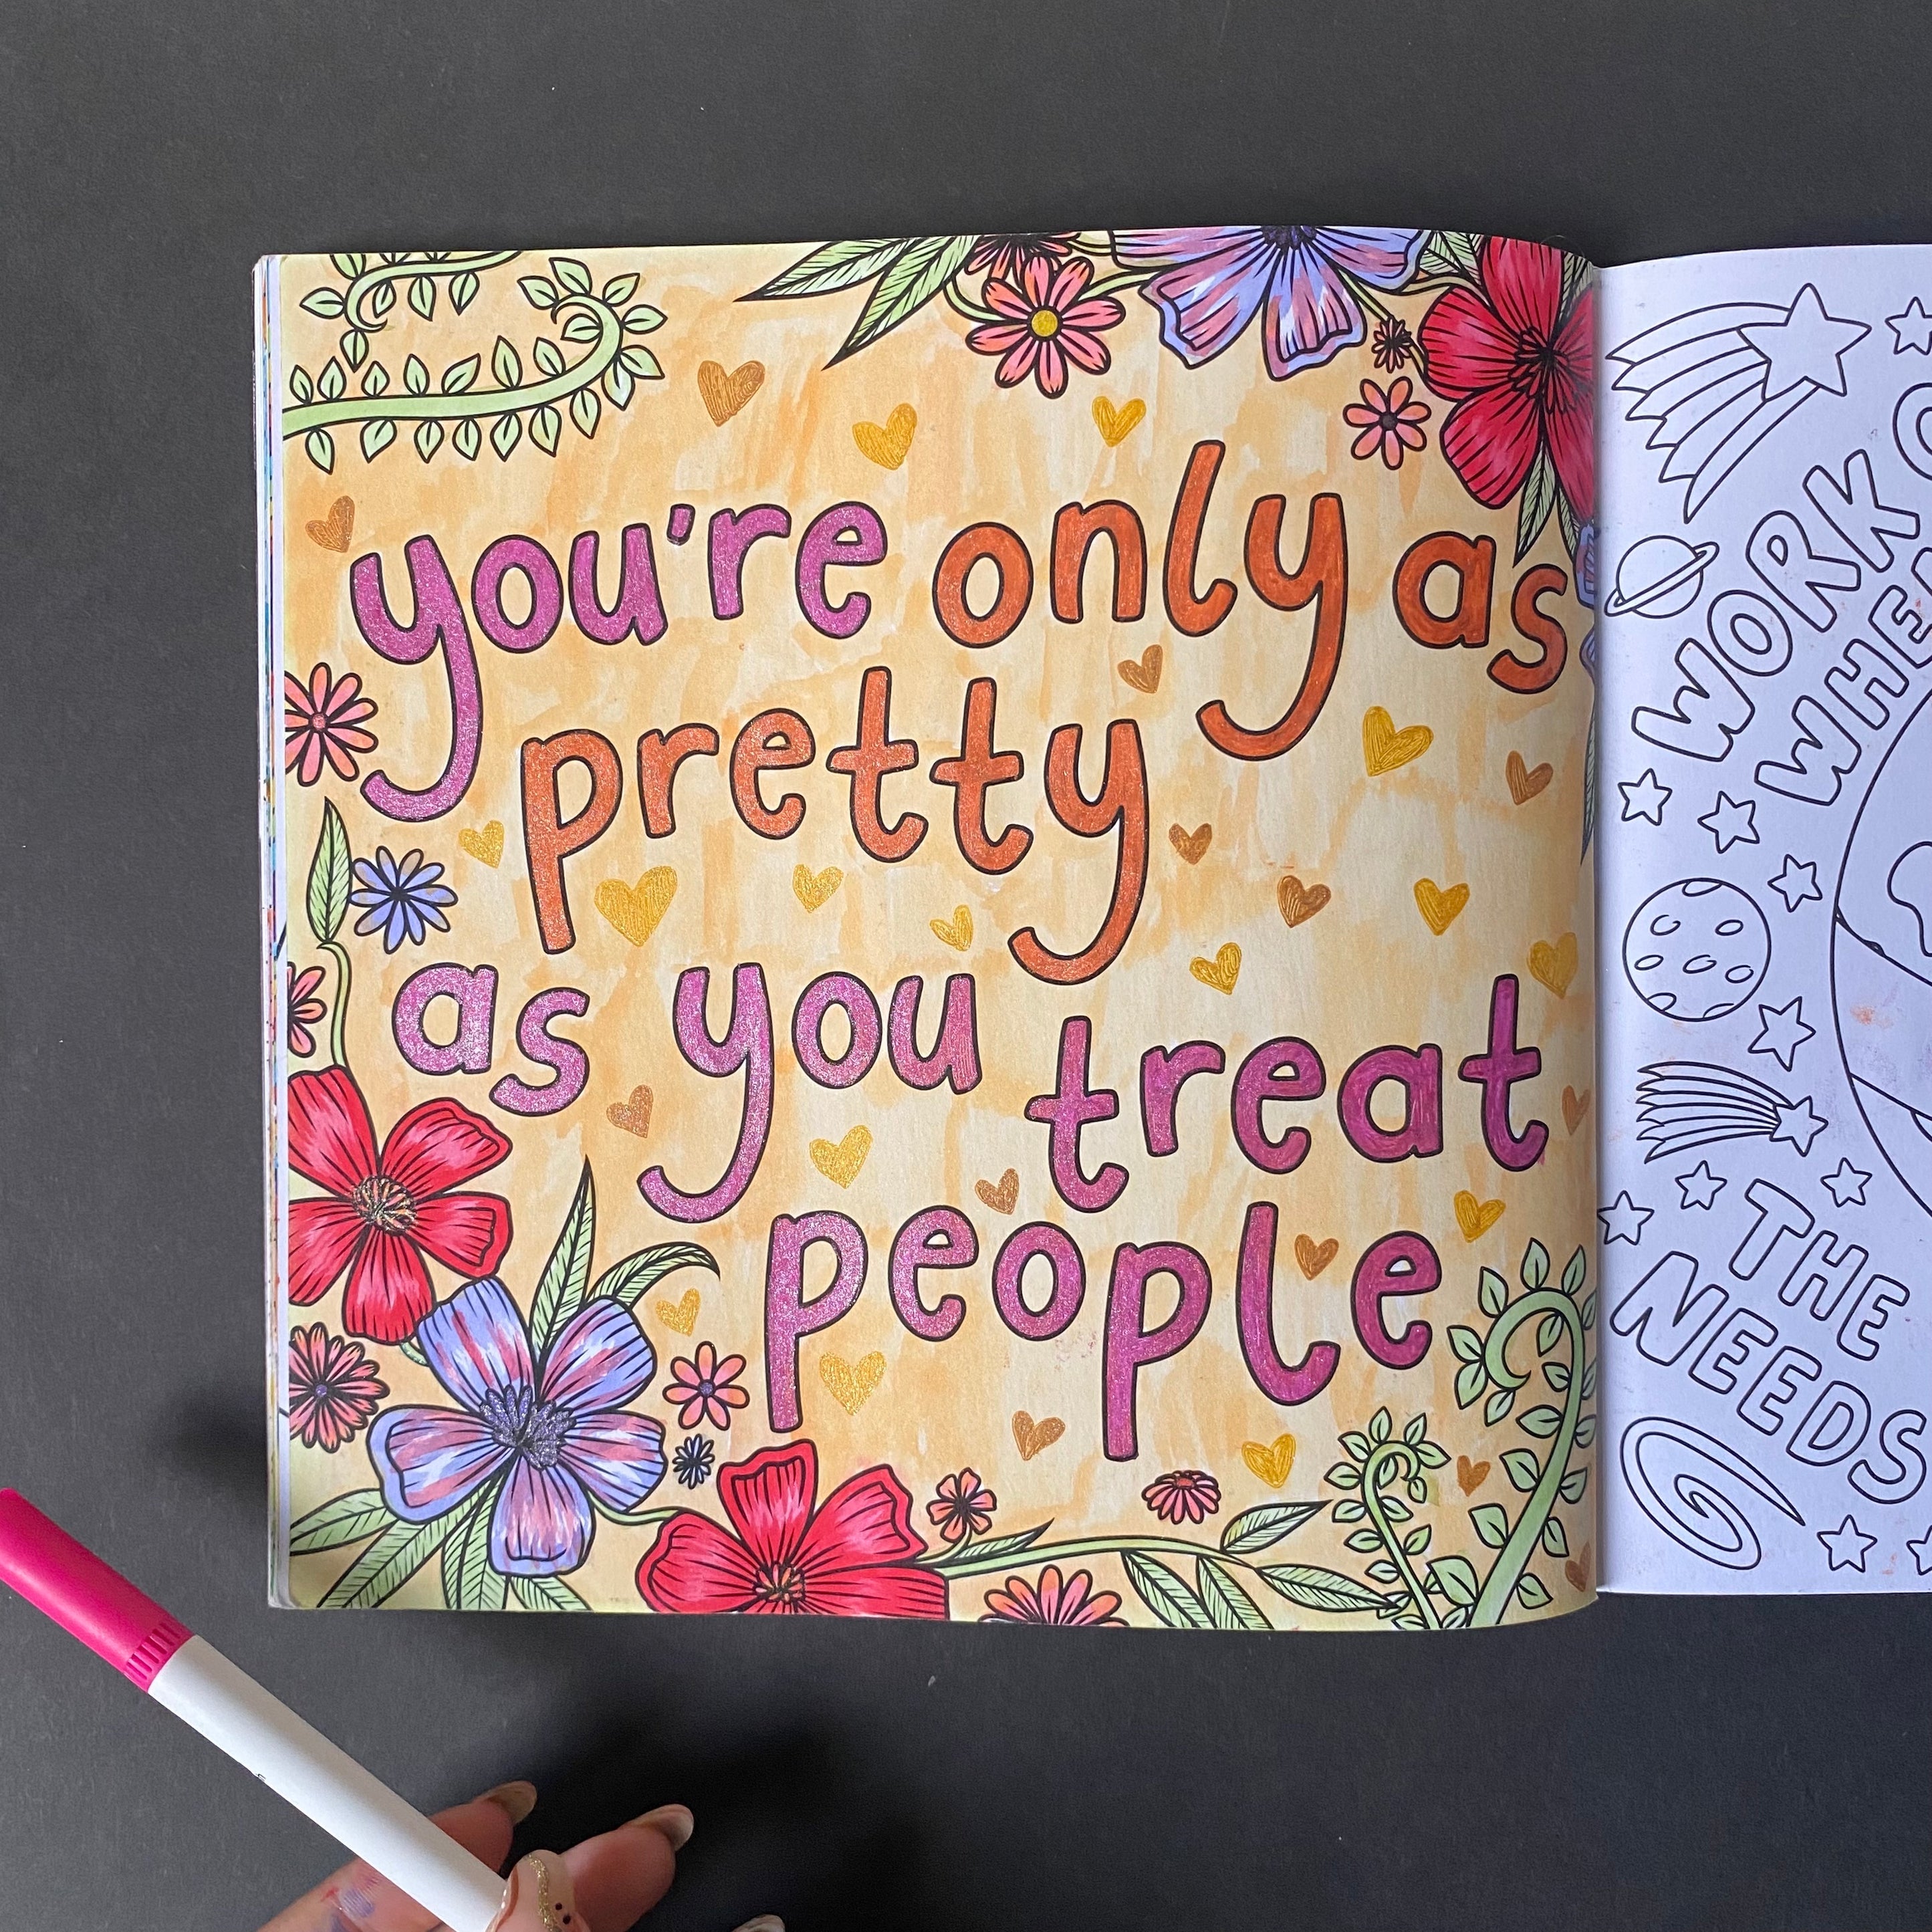 you're only as
pretty
as you treat
people
WORK
THE
NEEDS